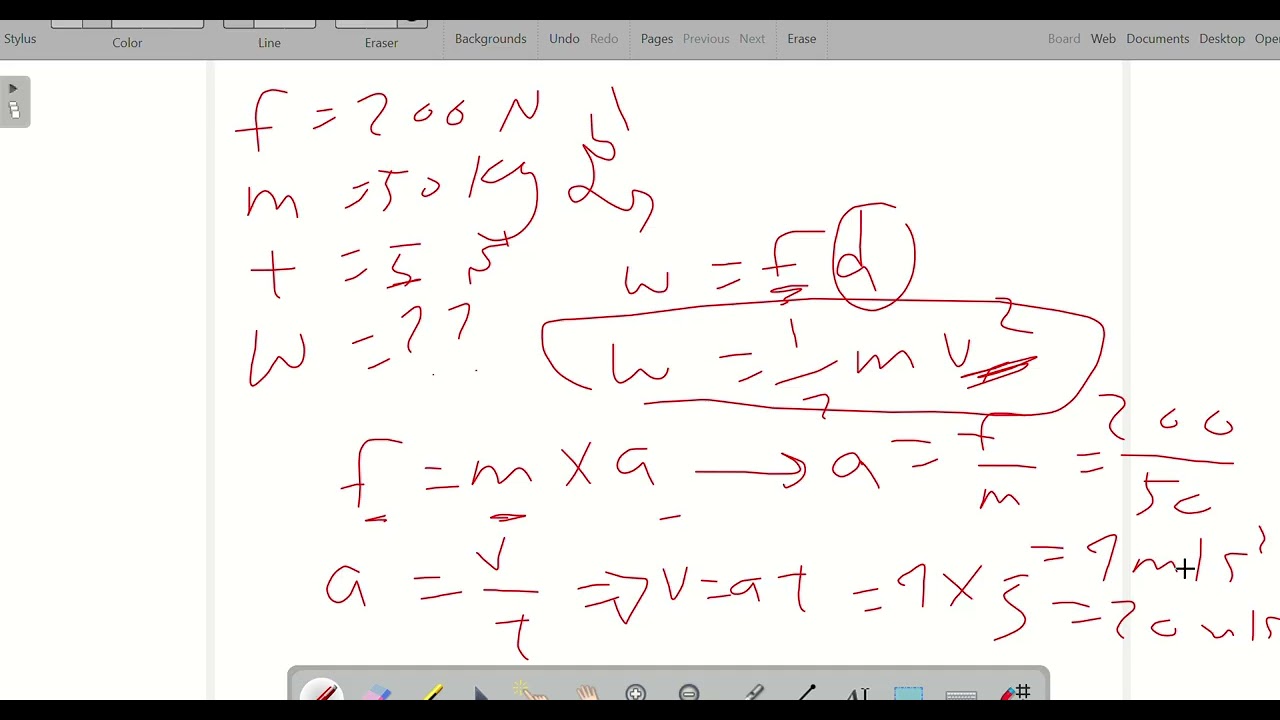 Stylus Color Line Eraser Backgrounds Undo Redo Pages Previous Next Erase Board Web Documents Desktop
f = 200 N
m = 50 Kg
t = 5
W = ??
w = f d
W = 1/2 m v²
f = m × a → a = f/m = 200/50
= 4 m/s²
a = v/t ⇒ v = a t = 4 × 5 = 20 m/s